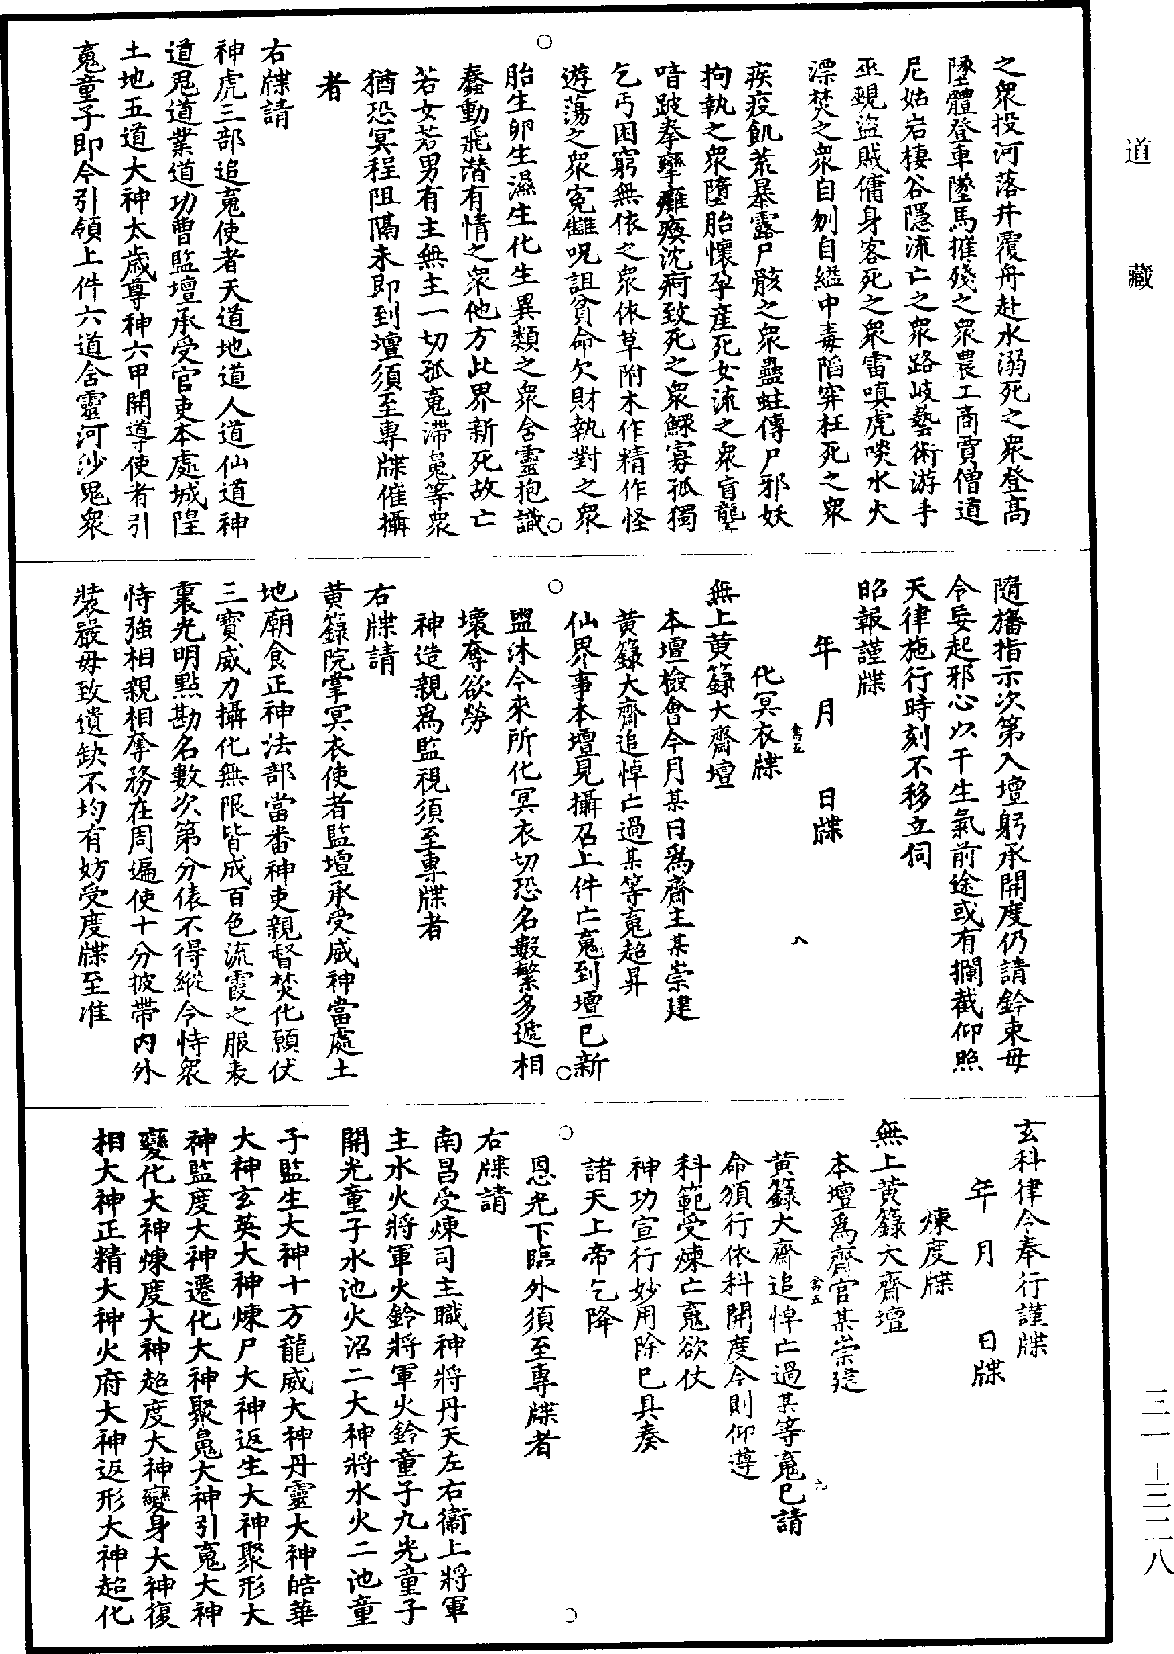 道藏
之衆投河落井覆舟赴水溺死之衆登高
墜體登車墜馬摧殘之衆農工商賈僧道
尼姑岩棲谷隱流亡之衆路岐藝術游手
巫覡盜賊傭身客死之衆雷嗔虎啖水火
漂焚之衆自刎自縊中毒陷穽枉死之衆
疾疫飢荒暴露尸骸之衆蠱蛀傳尸邪妖
拘執之衆墮胎懷孕産死女流之衆盲聾
喑跛拳攣癱瘓沈痾致死之衆鰥寡孤獨
乞丐困窮無依之衆依草附木作精作怪
遊蕩之衆冤讎呪詛負命欠財執對之衆
胎生卵生濕生化生異類之衆含靈抱識
蠢動飛潜有情之衆他方此界新死故亡
若女若男有主無主一切孤䰟滯䰟等衆
猶恐冥程阻隔未即到壇須至專牒催攝
者
右牒請
神虎三部追䰟使者天道地道人道仙道神
道鬼道業道功曹監壇承受官吏本處城隍
土地五道大神太歲尊神六甲開導使者引
䰟童子即今引領上件六道含靈河沙鬼衆
隨旛指示次第入壇躬承開度仍請鈐束毋
令妄起邪心以干生氣前途或有攔截仰照
天律施行時刻不移立伺
昭報謹牒
年 月 日牒
化冥衣牒
無上黄籙大齋壇
本壇檢會今月某日爲齋主某崇建
黄籙大齋追悼亡過某等䰟超昇
仙界事本壇見攝召上件亡䰟到壇已新
盥沐今來所化冥衣切恐名數繁多遞相
壞奪欲勞
神造親爲監視須至專牒者
右牒請
黄籙院掌冥衣使者監壇承受威神當處土
地廟食正神法部當番神吏親督焚化願伏
三寶威力攝化無限皆成百色流霞之服表
裏光明點勘名數次第分俵不得縱令恃衆
恃強相親相奪務在周遍使十分披帶内外
裝嚴毋致遺缺不均有妨受度牒至准
玄科律令奉行謹牒
年 月 日牒
煉度牒
無上黄籙大齋壇
本壇爲齋官某崇建
黄籙大齋追悼亡過某等䰟已請
命頒行依科開度今則仰遵
科範受煉亡䰟欲仗
神功宣行妙用除已具奏
諸天上帝乞降
恩光下臨外須至專牒者
右牒請
南昌受煉司主職神將丹天左右衞上將軍
主水火將軍火鈴將軍火鈴童子九光童子
開光童子水池火沼二大神將水火二池童
子監生大神十方龍威大神丹靈大神皓華
大神玄英大神煉尸大神返生大神聚形大
神監度大神遷化大神聚䰟大神引䰟大神
變化大神煉度大神超度大神變身大神復
相大神正精大神火府大神返形大神超化
三一—三二八